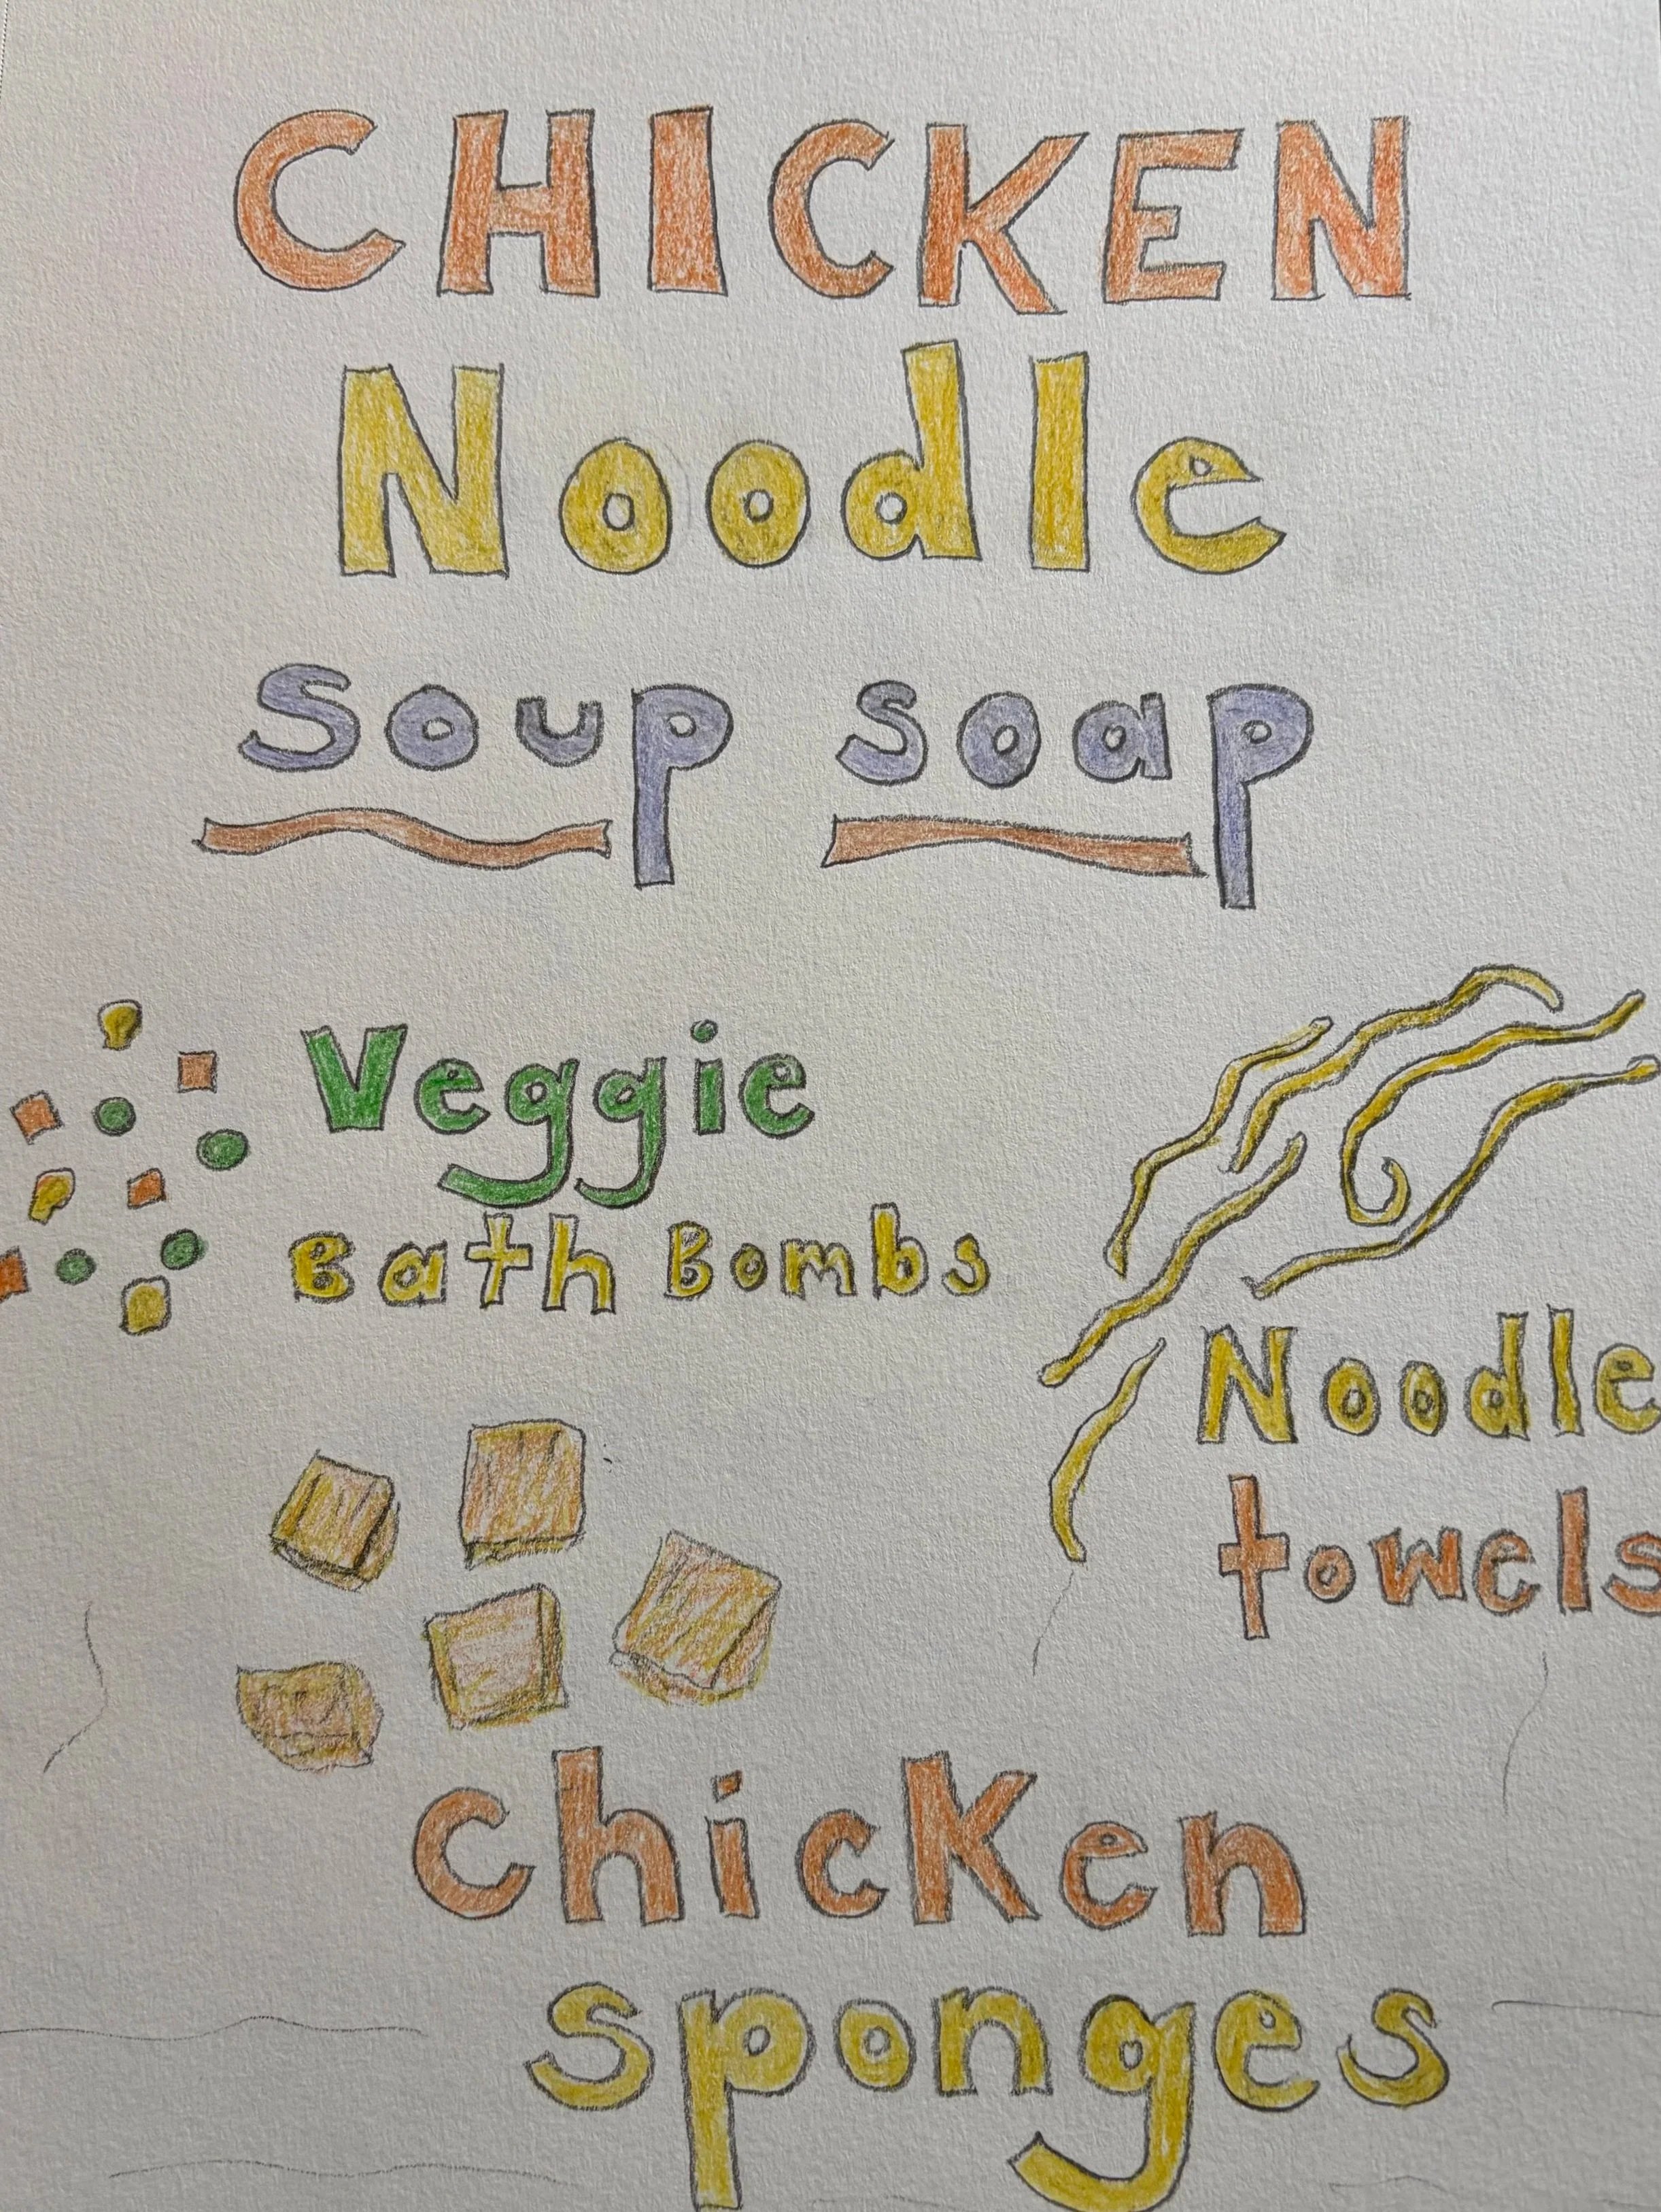 CHICKEN
Noodle
Soup soap
Veggie
Bath Bombs
Noodle
towels
chicken
sponges